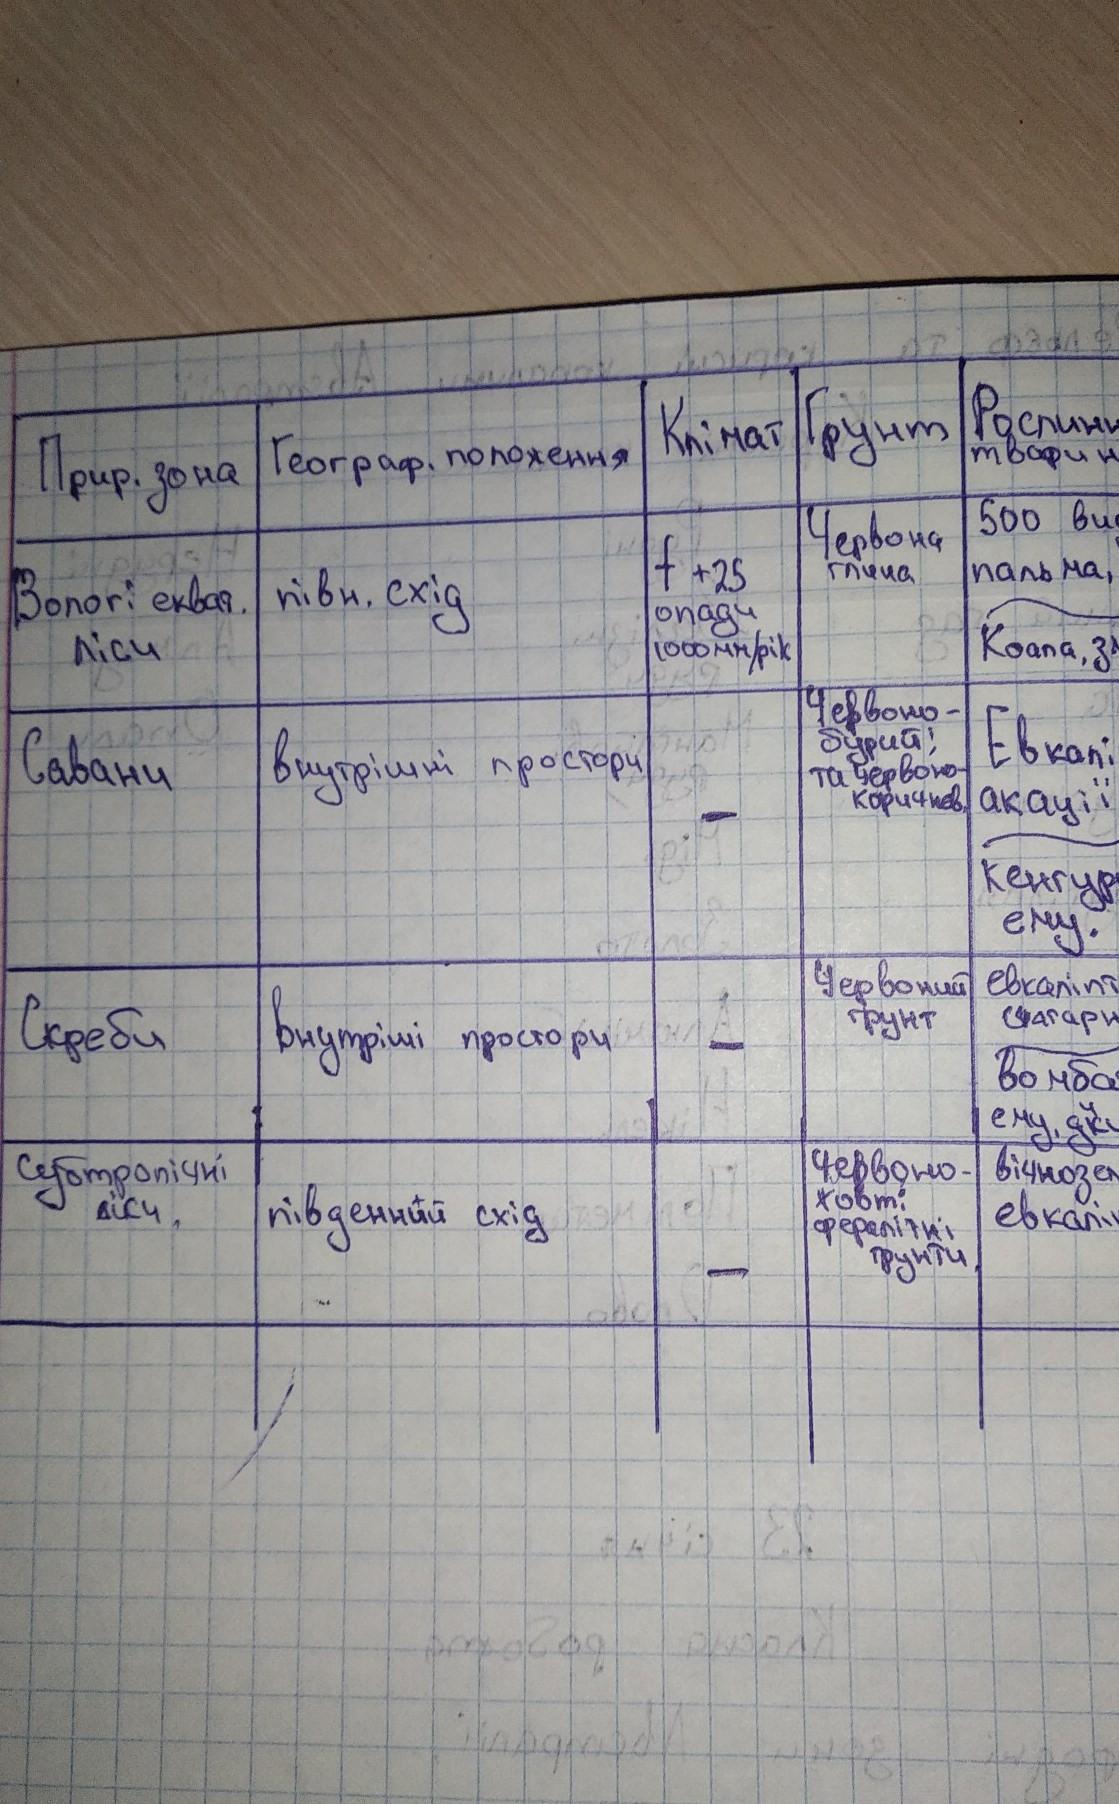 Прир. зона
Географ. положення
Клімат
Грунт
Рослини
тварин
Вологі екват.
ліси
півн. схід
t +25
опади
1000мм/рік
Червона
глина
500 вид
пальма,
Коала, зм
Савани
внутрішні простори
–
Червоно-
бурий;
та червоно-
коричнев.
Евкалі
акації
кенгур
ему.
Скреби
внутріші простори
–
Червоний
грунт
евкаліпт
чагарн
вомба
ему, дик
Субтропічні
ліси.
південний схід
–
Червоно-
жовті
фералітні
грунти.
вічнозел
евкаліп
23 січня
Класна робота
зони Австралії